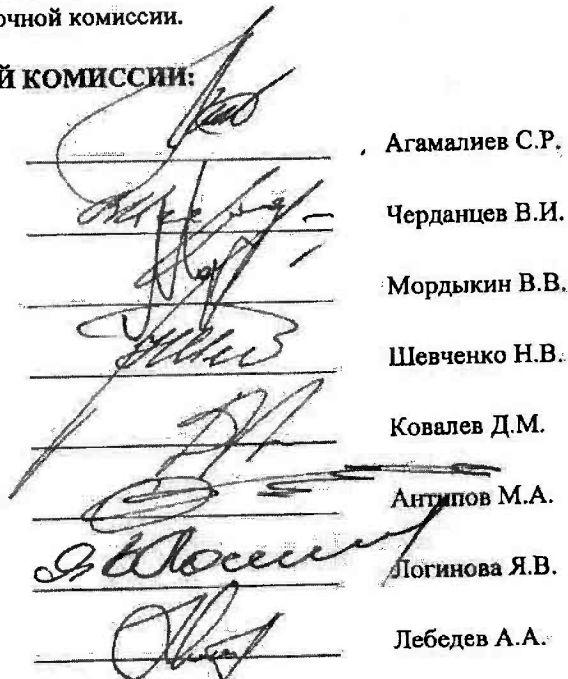 очной комиссии.
Й КОМИССИИ:
Агамалиев С.Р.
Черданцев В.И.
Мордыкин В.В.
Шевченко Н.В.
Ковалев Д.М.
Антипов М.А.
Логинова Я.В.
Лебедев А.А.